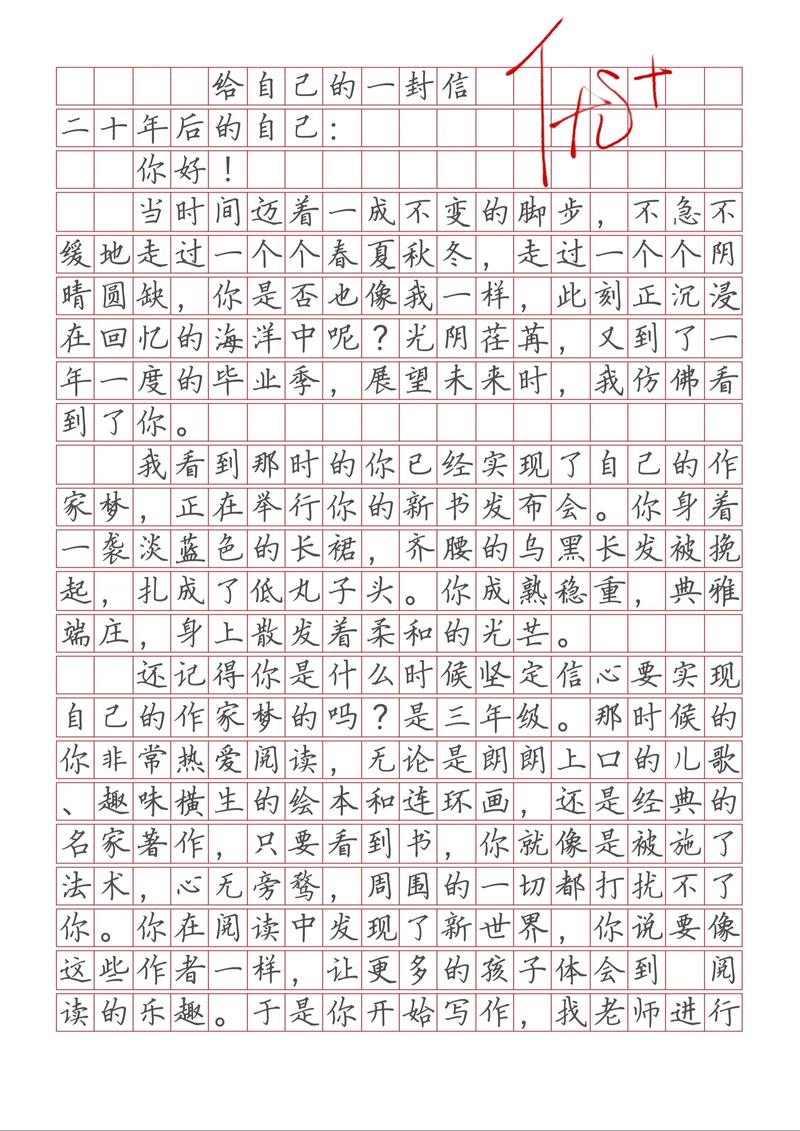 给自己的一封信
优+
二十年后的自己：
你好！
当时间迈着一成不变的脚步，不急不
缓地走过一个个春夏秋冬，走过一个个阴
晴圆缺，你是否也像我一样，此刻正沉浸
在回忆的海洋中呢？光阴荏苒，又到了一
年一度的毕业季，展望未来时，我仿佛看
到了你。
我看到那时的你已经实现了自己的作
家梦，正在举行你的新书发布会。你身着
一袭淡蓝色的长裙，齐腰的乌黑长发被挽
起，扎成了低丸子头。你成熟稳重，典雅
端庄，身上散发着柔和的光芒。
还记得你是什么时候坚定信心要实现
自己的作家梦的吗？是三年级。那时候的
你非常热爱阅读，无论是朗朗上口的儿歌
、趣味横生的绘本和连环画，还是经典的
名家著作，只要看到书，你就像是被施了
法术，心无旁骛，周围的一切都打扰不了
你。你在阅读中发现了新世界，你说要像
这些作者一样，让更多的孩子体会到 阅
读的乐趣。于是你开始写作，我老师进行